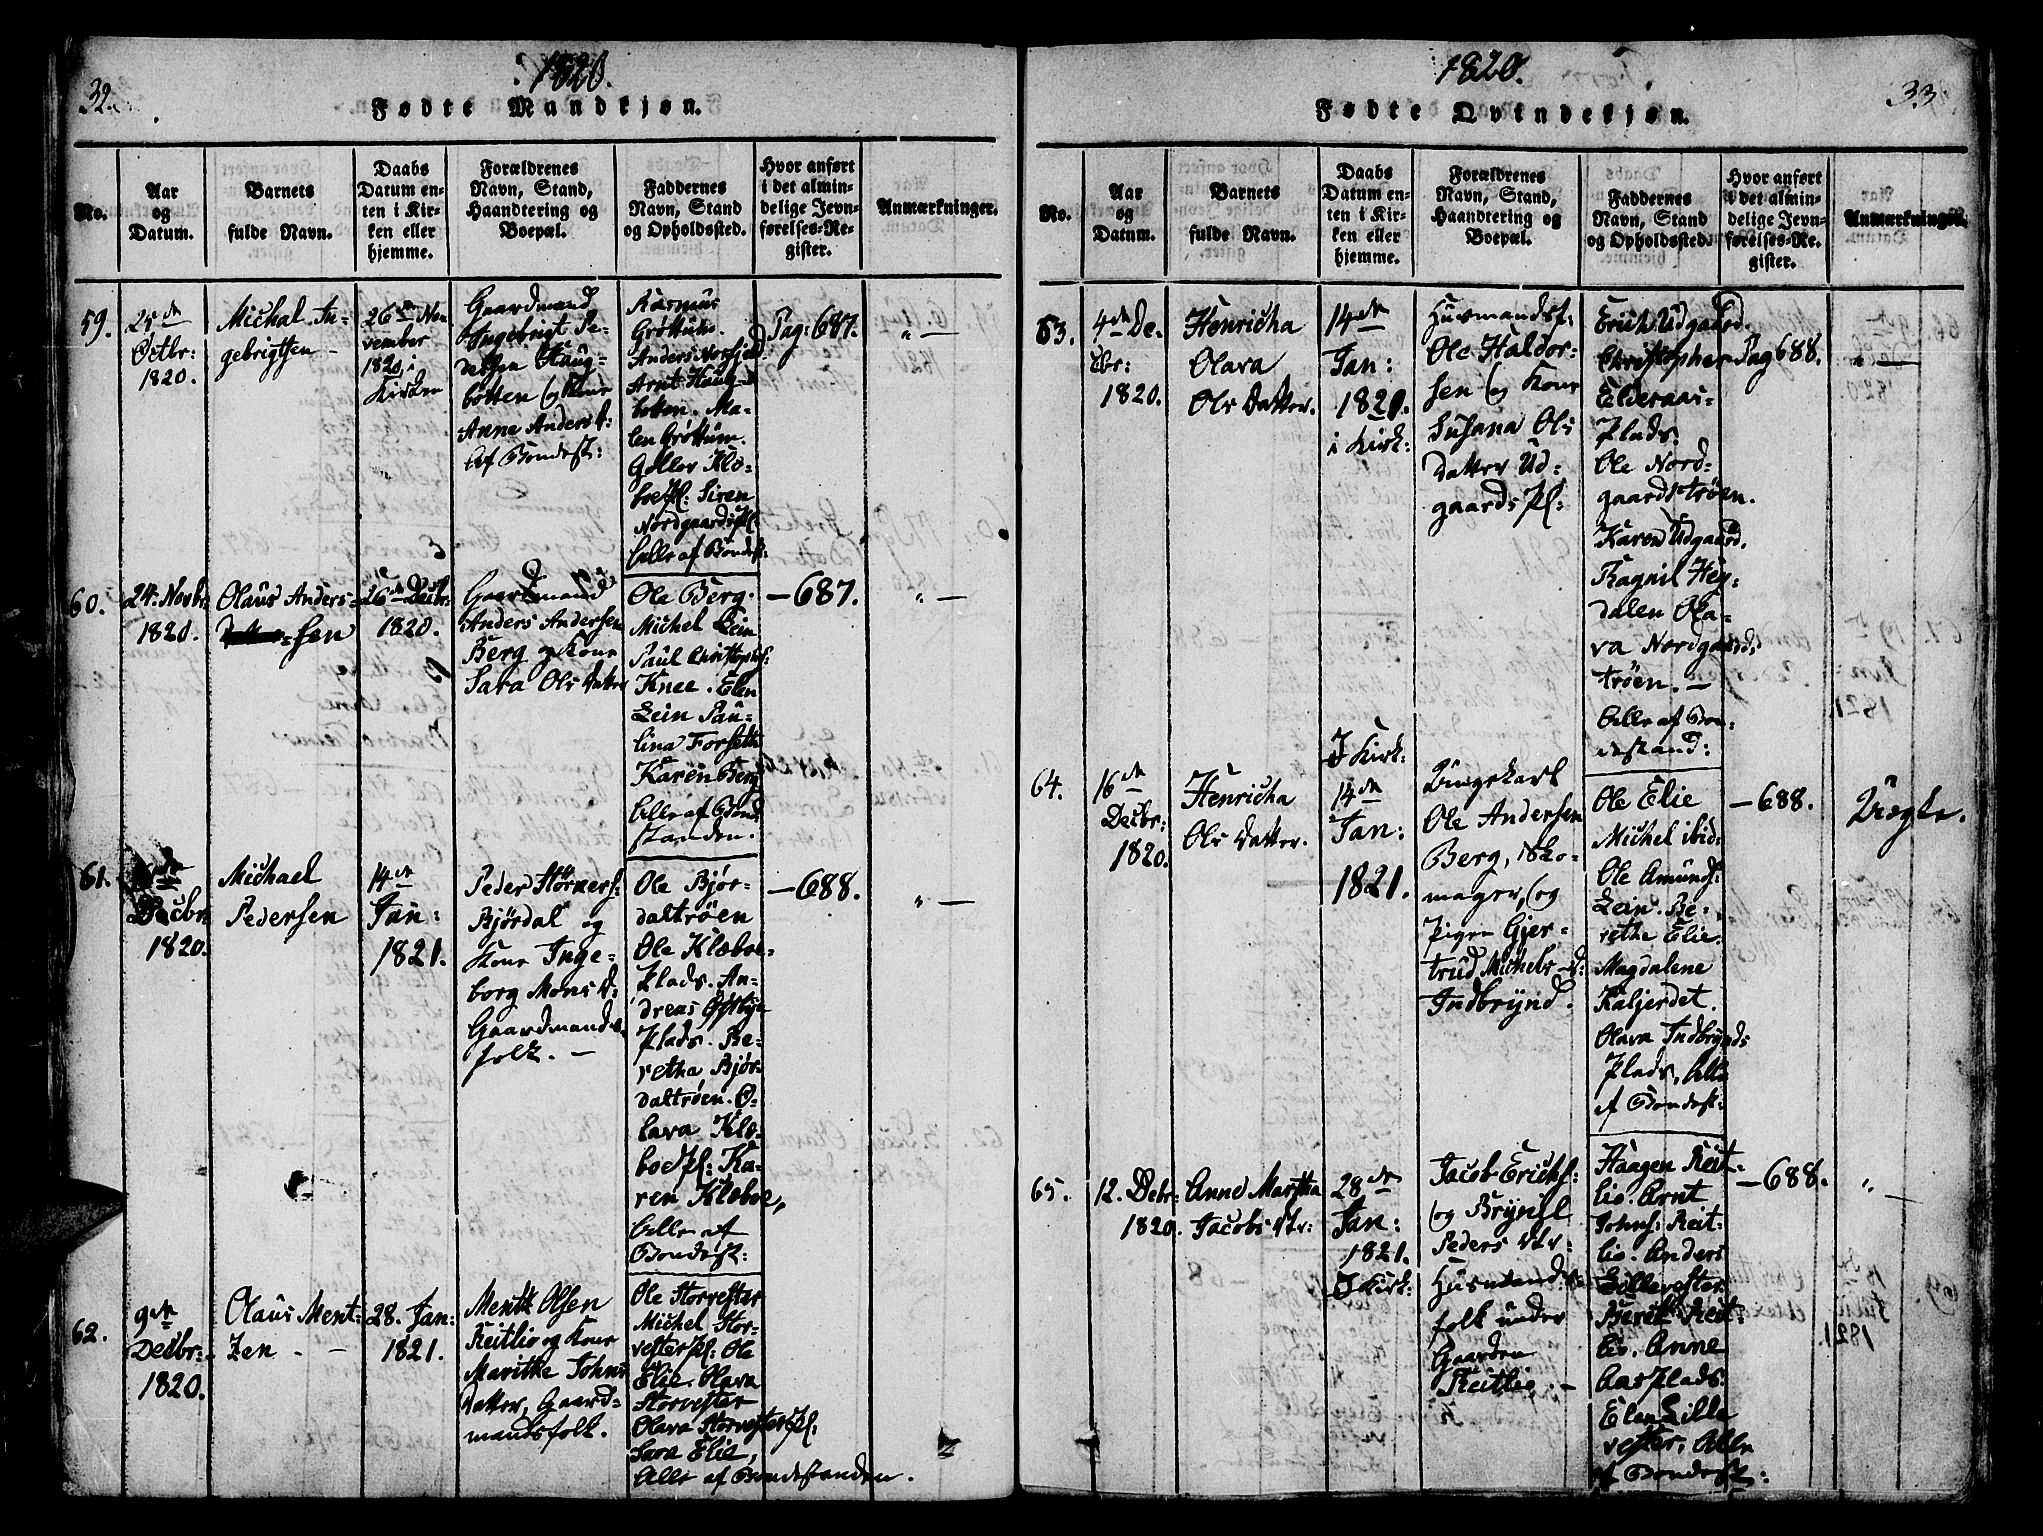 32.
1820.
Fødte Mandkjøn.
No.
Aar
og
Datum.
Barnets
fulde Navn.
Daabs
Datum en-
ten i Kir-
ken eller
hjemme.
Forældrenes
Navn, Stand,
Haandtering og
Boepæl.
Faddernes
Navn, Stand
og Opholdssted.
Hvor anført
i det almin-
delige Jevn-
førelses-Re-
gister.
Anmærkninger.
59.
25de
Octbr:
1820.
Michal In-
gebrigtsen -
26de No-
vember
1820, i
Kirken
Gaardmand
Ingebrigt Pe-
dersen Haug-
botten og Kone
Anne Anders D:
af Bondest:
Rasmus
Grøttum.
Anders Norfjeld
Arnt Haug-
botten. Ma-
len Grøttum.
Goller Klæ-
boepl: Siren
Nordgaardspl.
Alle af Bondest:
Pag: 687.
" -
60.
24. Novbr
1820.
Olaus Anders-
sen
26de Decbr:
1820.
Gaardmand
Anders Andersen
Berg og Kone
Sara Ols Datter
Ole Berg.
Michel Lein
Paul Christophs:
Knee. Elen
Lein Pau-
lina Forseth
Karen Berg
Alle af Bond
standen.
- 687.
" -
61.
Decbr
1820.
Michael
Pedersen
14de
Jan:
1821.
Peder Størkers:
Bjørdal og
Kone Inge-
borg Mons D:
Gaardmands
folk. -
Ole Bjør-
daltrøen
Ole Klæboe-
Plads. An-
dreas Østbye
Plads. Be-
retha Bjør-
daltrøen. O-
lava Klæ-
boepl: Ka-
ren Klæboe,
Alle af
Bondest:
- 688.
" -
62.
9de
Decbr:
1820.
Olaus Ment-
zen - -
28. Jan:
1821.
Mentz Olsen
Reitlio og Kone
Maritte Johns
Datter, Gaard-
mandsfolk.
Ole Storvester
Michel Stor-
vesterpl: Ole
Elie. Olava
Storvester
Olava Storvesterpl:
Sara Elie,
Alle af Bondestanden.
1820.
33
Fødte Qvindekjøn.
No.
Aar
og
Datum.
Barnets
fulde Navn.
Daabs
Datum en-
ten i Kir-
ken eller
hjemme.
Forældrenes
Navn, Stand,
Haandtering og
Boepæl.
Faddernes
Navn, Stand
og Opholdssted.
Hvor anført
i det almin-
delige Jevn-
førelses-Re-
gister.
Anmærkninger.
63.
4de De-
cbr:
1820.
Henricha
Olava
Ols Datter.
14de
Jan:
1821.
i Kirk:
Husmandsf:
Ole Haldor-
sen og Kone
Susana Ols
Datter Ud-
gaards Pl:
Erich Udgaard.
Christopher
Elderaas-
Plads.
Ole Nord-
gaardstrøen.
Karen Udgaard.
Ragnil Hey-
dalen Ola-
va Nordgaards
trøen. -
Alle af Bon-
destand:
Pag 688.
" -
64.
16de
Decbr:
1820.
Henricha
Ols Datter.
I Kirk:
14de
Jan:
1821.
Ungekarl
Ole Andersen
Berg, Sko-
mager, og
Pigen Gjer-
trud Michels D:
Indbrynd.
Ole Elie
Michel ibid:
Ole Amunds:
Lein. Be-
retha Elie.
Magdalene
Kaljerdet.
Olava Indbrynds
Plads, Alle
af Bondest:
- 688.
Uægte.
65.
12. Debr:
1820.
Anne Martha
Jacobs Dtr:
28de
Jan:
1821.
I Kirk:
Jacob Erichs:
og Brynil
Peders Dtr:
Husmands-
folk under
Gaarden
Reitlio. -
Haagen Reit-
lio. Arnt
Johns: Reit-
lio. Anders
Lillevester
Berit Reit-
lio. Anne
Aasplads.
Elen Lille
vester, Alle
af Bondest:
- 688.
" -